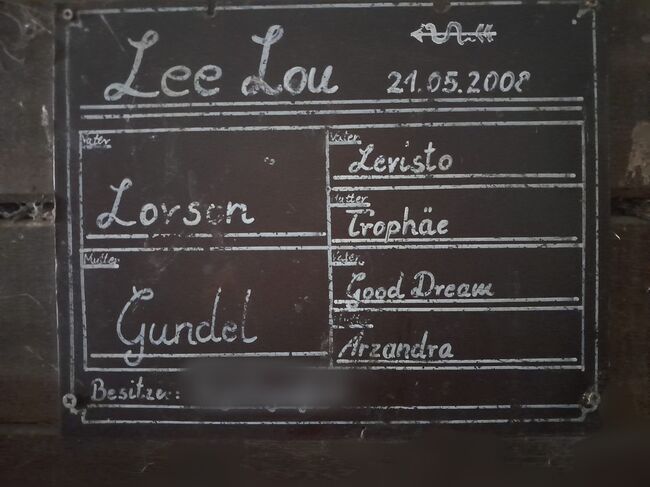 Lee Lou
21.05.2008
Vater
Lorsen
Mutter
Gundel
Vater
Levisto
Mutter
Trophäe
Vater
Good Dream
Arzandra
Besitzer: